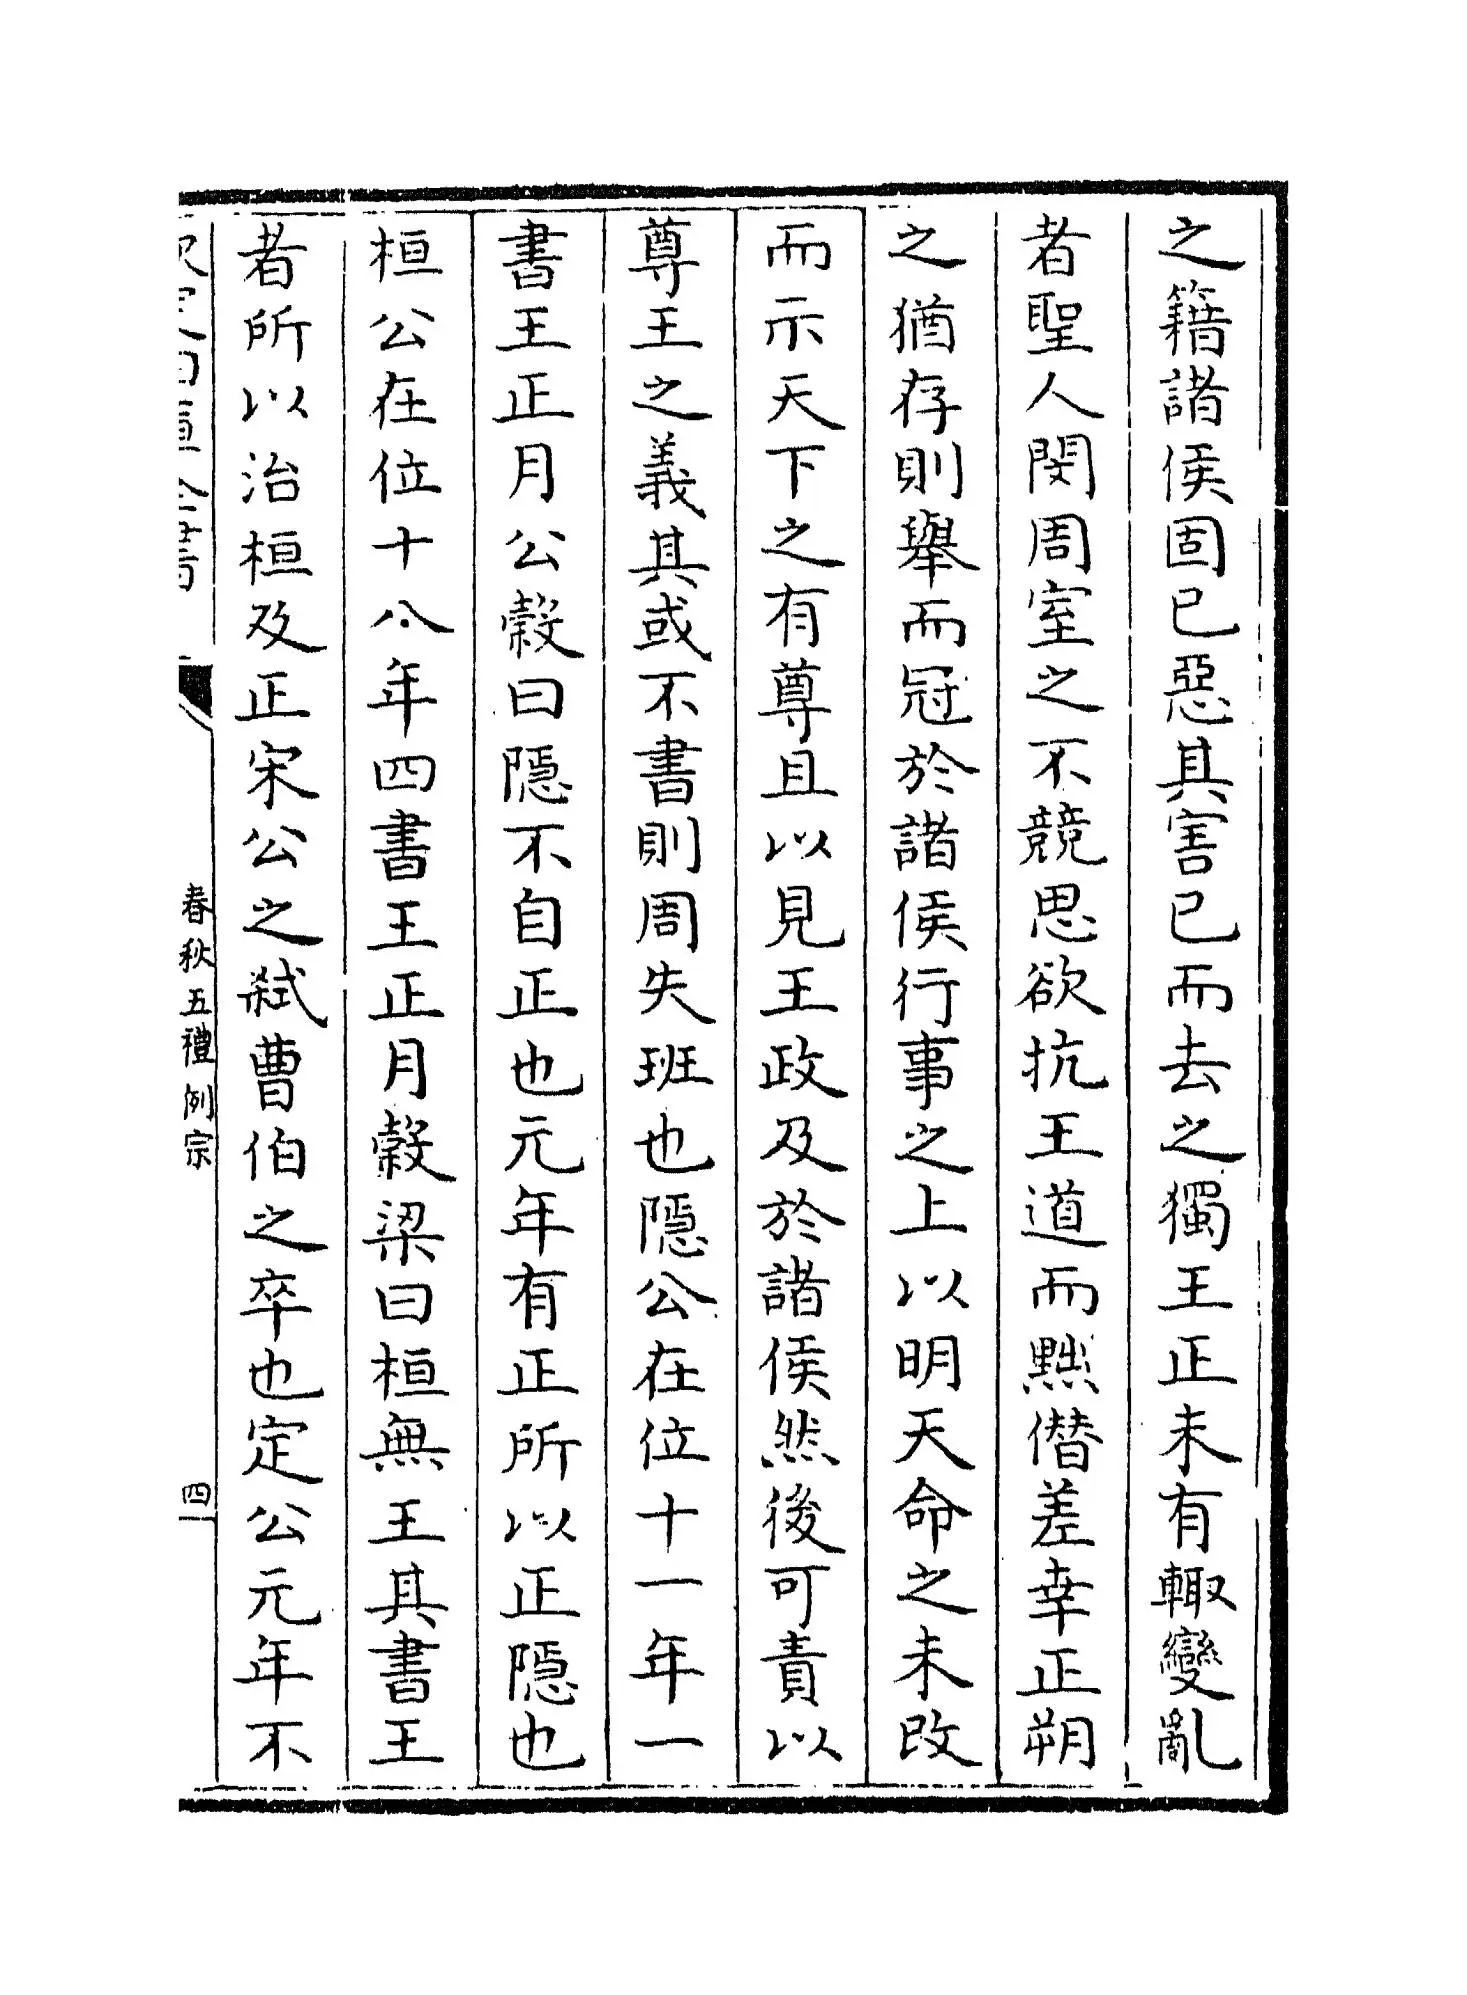 之籍諸侯固已惡其害已而去之獨王正未有輙變亂
者聖人閔周室之不競思欲抗王道而黜僭差幸正朔
之猶存則舉而冠於諸侯行事之上以明天命之未改
而示天下之有尊且以見王政及於諸侯然後可責以
尊王之義其或不書則周失班也隱公在位十一年一
書王正月公榖曰隱不自正也元年有正所以正隱也
桓公在位十八年四書王正月榖梁曰桓無王其書王
者所以治桓及正宋公之弑曹伯之卒也定公元年不
欽定四庫全書
春秋五禮例宗
四